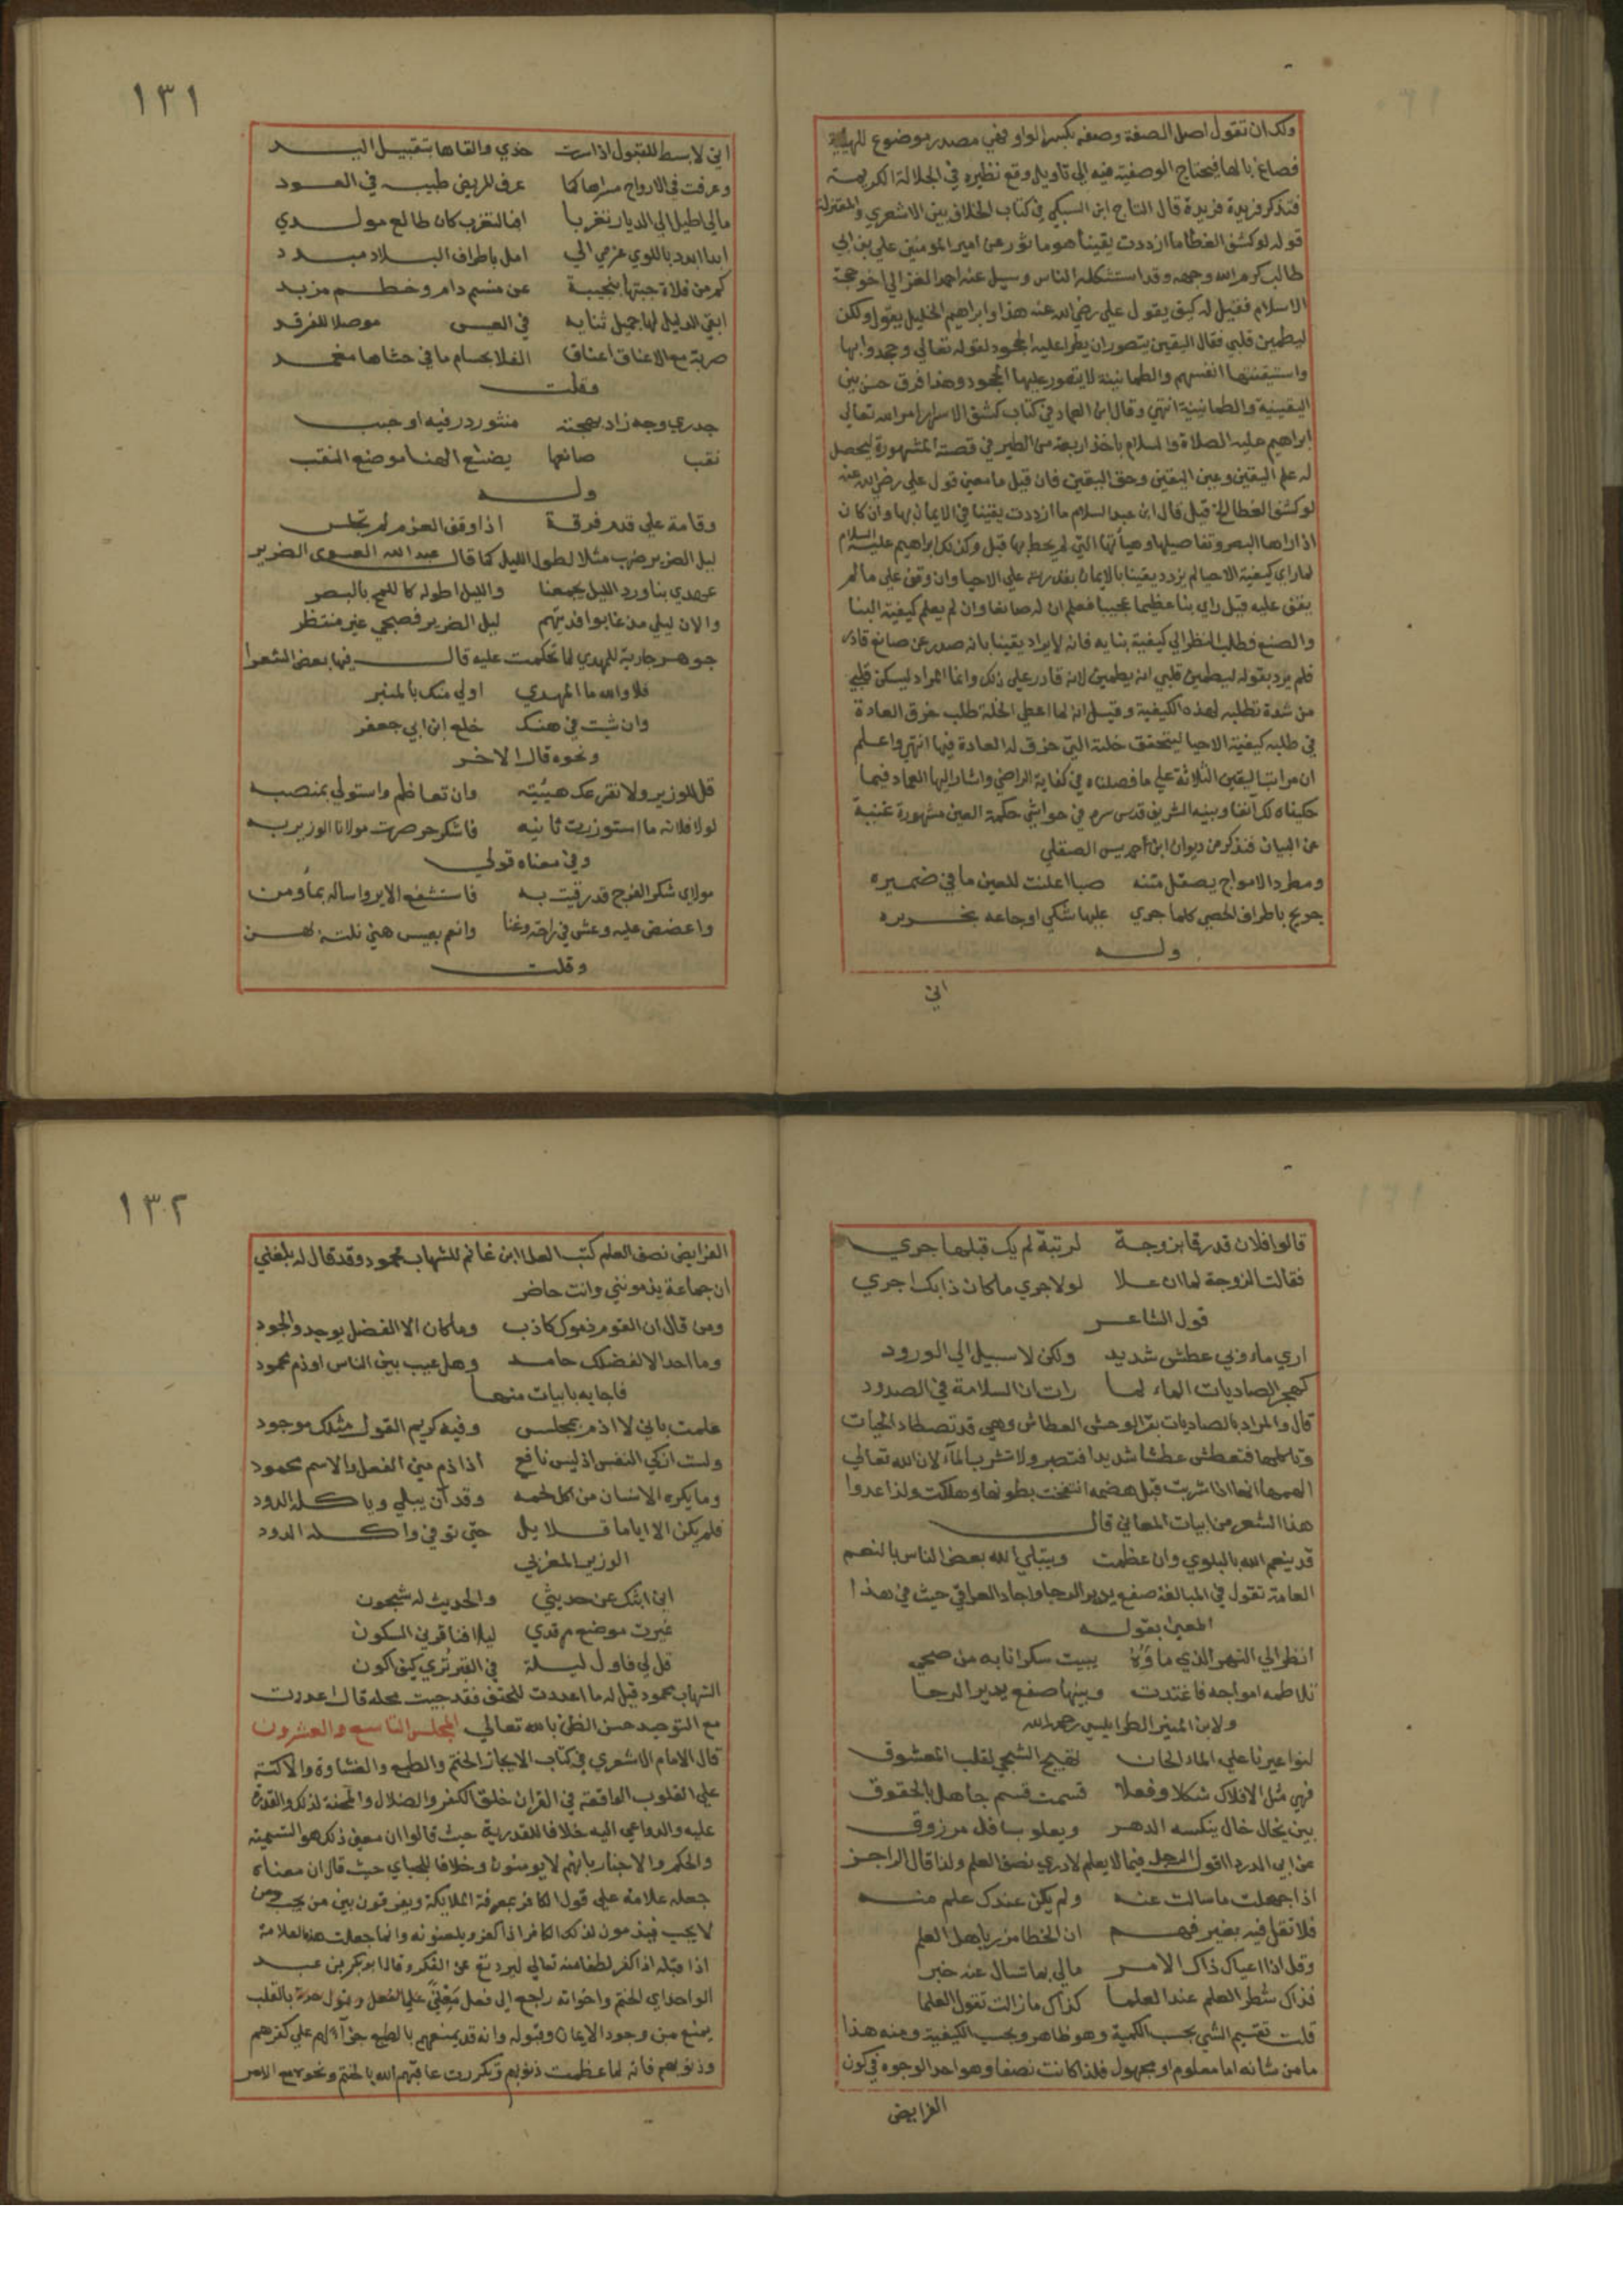 ولك ان تقول اصل الصفة وصفه بكسر الواو فهي مصدر موضوع للهيئة
فصاغ بالها فيحتاج الوصفية فيه الى تاويل وقع نظيره في الجلالة الكريمة
فتذكر فريدة فريدة قال التاج ابن السبكي في كتاب الخلاف بين الاشعري والمعتزلة
قوله لو كشف الغطا ما ازددت يقينا هو ماثور عن امير المومنين علي بن ابي
طالب كرم الله وجهه وقد استشكله الناس وسيل عنه احمد الغزالي اخو حجة
الاسلام فقيل له كيف يقول علي رضي الله عنه هذا وابراهيم الخليل يقول ولكن
ليطمين قلبي فقال اليقين يتصور ان يطرا عليه الجحود لقوله تعالي وجحدوا بها
واستيقنتها انفسهم والطمانينة لا يتصور عليها الجحود وهذا فرق حسن بين
اليقينية والطمانينة انتهي وقال ابن العماد في كتاب كشف الاسرار امر الله تعالي
ابراهيم عليه الصلاة والسلام باخذ اربعة من الطير في قصته المشهورة ليحصل
له علم اليقين وعين اليقين وحق اليقين فان قيل ما معني قول علي رضي الله عنه
لو كشف الغطا الخ قيل قال ابن عبد السلام ما ازددت يقينا في الايمان بها وان كان
اذا راها ابصر تفاصيلها وهياتها التي لم يحط بها قبل وكذلك ابراهيم عليه السلام
لما راي كيفية الاحيا لم يزدد يقينا بالايمان بقدرته علي الاحيا وان وقف علي ما لم
يقف عليه قبل راي بنا عظيما عجيبا فعلم ان له صانعا وان لم يعلم كيفية البنا
والصنع فطلب النظر الي كيفية بنايه فانه لا يزاد يقينا بانه صدر عن صانع قادر
فلم يرد بقوله ليطمين قلبي انه يطمين لانه قادر علي ذلك وانما المراد ليسكن قلبي
من شدة تطلبه لهذه الكيفية وقيل انه لما اعطي الخلة طلب خرق العادة
في طلبه كيفية الاحيا ليتحقق خلته التي خرق له العادة فيها انتهي واعلم
ان مراتب اليقين الثلاثة علي ما فصلناه في كفاية الراضي واشار اليها العماد فيما
حكيناه لك آنفا وبينه الشريف قدس سره في حواشي حكمة العين مشهورة غنية
عن البيان فتذكر من ديوان ابن حمديس الصقلي
ومطرد الامواج يصقل متنه صبا اعلنت للعين ما في ضميره
جريح باطراف الحصي كلما جري عليها شكي اوجاعه بخريره
وله
اني
١٣١
اني لابسط للقبول اذا سرت خدي والقاها بتقبيل اليد
وعرفت في الارواح مسراها كما عرف المريض طبيبه في العود
مالي اطيل الي الديار تغربا افبالتغرب كان طالع مولدي
ابدا ابدد بالنوي عزمي الي امل باطراف البلاد مبدد
كم من فلاة جبتها بنجيبة عن منسم دام وخطم مزبد
ابقي الدليل لها جميل ثنايه في العيس موصلا للفرقد
ضربت مع الاعناق اعناق الفلا بحسام ما في حشاها مغمد
وقلت
جدري وجه زاد بهجته منثور در فيه اوجب
نقب صانها يضع الهنا موضع النقب
وله
وقامة علي قدم فرقة اذا وقف العزم لم تجلس
ليل الضرير ضرب مثلا لطول الليل كما قال عبد الله العسوى الضرير
عهدي بنا ورد الليل يجمعنا والليل اطوله كاللمح بالبصر
والان ليلي مذ غابوا فديتهم ليل الضرير فصبحي غير منتظر
جوهر جارية للمهدي لما تحكمت عليه قال فيها بعض الشعرا
فلا والله ما المهدي اولي منك بالمنبر
وان شيت في هنك خلع ابن ابي جعفر
ونحوه قال الاخر
قل للوزير ولا تفزعك هيبته وان تعاظم واستولي بمنصبه
لولا فلانه ما استوزرت ثانيه فاشكر حر صرت مولانا الوزير به
وفي معناه قولي
مولاي شكر الفرج قد رقيت به فاستشفع الاير واساله بما ومن
واعضض عليه وعش في راحة وغنا وانعم بعيس هني نلته بهن
وقلت
قالوا فلان قد رقا بزوجة لرتبة لم يك قبلها جري
فقالت الزوجة لما ان علا لولا جري ما كان ذا بك اجري
قول الشاعر
اري ماء وبي عطش شديد ولكن لا سبيل الي الورود
كهجر الصاديات الماء لما رات ان السلامة في الصدود
قال والمراد بالصاديات بقر الوحش العطاش وهي قد تصطاد الحيات
وتاكلها فتعطش عطشا شديدا فتصبر ولا تشرب المآء لان الله تعالي
الهمها انها اذا شربت قبل هضمه انتفخت بطونها وهلكت ولذا عدوا
هذا الشعر من ابيات المعاني قال
قد ينعم الله بالبلوي وان عظمت ويبتلي الله بعض الناس بالنعم
العامة تقول في المبالغة صفع يدير الرحا واجاد العراقي حيث في هذا
المعني بقوله
انظر الي النهر الذي ماؤه يبيت سكرانا به من صحي
تلاطمه امواجه فاغتدت وبينها صفع يدير الرحا
ولابن المنير الطرابلسي رحمه الله
لنواعيرنا علي الماء الحان تهيج الشجي لقلب المعشوق
فهي مثل الافلاك شكلا وفعلا قسمت قسم جاهل بالحقوق
بين نحال خال ينكسه الدهر ويعلو بسافل مرزوق
عن ابي الدرداء قول الرجل فيما لا يعلم لا ادري نصف العلم ولذا قال الراجز
اذا جهلت ما سالت عنه ولم يكن عندك علم منه
فلا تقل فيه بغير فهم ان الخطا مزر باهل العلم
وقل اذا اعياك ذاك الامر مالي بما تسال عنه خبر
فذاك شطر العلم عند العلما كذاك ما زالت تقول العلما
قلت تقسيم الشي بحسب الكمية وهو ظاهر وبحسب الكيفية ومنه هذا
ما من شانه اما معلوم او مجهول فلذا كانت نصفا وهو احد الوجوه في كون
الفرايض
١٣٢
الفرايض نصف العلم كتب العلا ابن غانم للشهاب محمود وقد قال له بلغني
ان جماعة يذمونني وانت حاضر
ومن قال ان القوم ذموك كاذب وما كان الا الفضل يوجد والجود
وما احد الا لفضلك حامد وهل عيب بين الناس او ذم محمود
فاجابه بابيات منها
علمت باني لا اذم بمجلس وفيه كريم القول مثلك موجود
ولست ازكي النفس اذ ليس نافع اذا ذم مني الفعل والاسم محمود
وما يكره الانسان من اكل لحمه وقد آن يبلي وياكله الدود
فلم يكن الا اياما قلايل حتي توفي واكله الدود
الوزير المغربي
اني ابثك عن حديثي والحديث له شجون
غيرت موضع مرقدي ليلا ففارقني السكون
قل لي فاول ليلة في القبر تري كيف اكون
الشهاب محمود قيل له ما اعددت للحتف فقد جيت محله قال اعددت
مع التوحيد حسن الظن بالله تعالي المجلس التاسع والعشرون
قال الامام الاشعري في كتاب الايجاز الختم والطبع والغشاوة والاكنة
علي القلوب الواقعة في القران خلق الكفر والضلال والمحنة لذلك والقدرة
عليه والدواعي اليه خلافا للقدرية حيث قالوا ان معني ذلك هو التسمية
والحكم والاخبار بانهم لا يومنون وخلافا للجباي حيث قال ان معناه
جعله علامة علي قول الكافر بمعرفة الملايكة ويفرقون بين من يحب ومن
لا يحب فيذمون لذلك الكافر اذا كفر ويلعنونه وانما جعلت هذه العلامة
اذا قبله اذا كفر لطفا منه تعالي ليرتدع عن الفكر وقال ابو بكر بن عبد
الواحد اي الختم واخواته راجع الي فعل علي الفعل بالقلب
يمنع من وجود الايمان وقبوله وانه قد يمنعهم بالطبع جزآء لهم علي كفرهم
وذنوبهم فانه لما عظمت ذنوبهم وتكررت عاقبهم الله بالختم ونحوه مع الامر